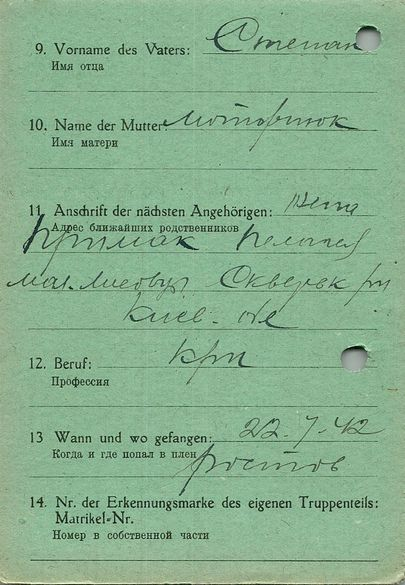 9. Vorname des Vaters: Степан
Имя отца
10. Name der Mutter: Моторнюк
Имя матери
11. Anschrift der nächsten Angehörigen: жена
Адрес ближайших родственников
Примак Пелагея
Скверск рн
Киев. обл
12. Beruf: крп
Профессия
13 Wann und wo gefangen: 22-7-42
Когда и где попал в плен Ростов
14. Nr. der Erkennungsmarke des eigenen Truppenteils:
Matrikel-Nr.
Номер в собственной части